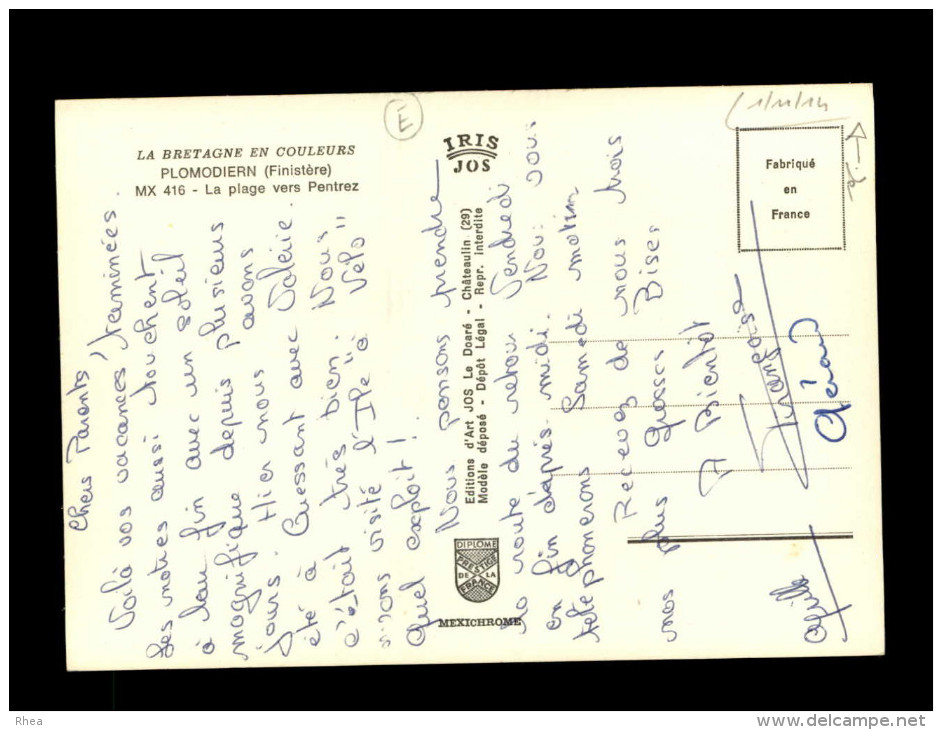 LA BRETAGNE EN COULEURS
PLOMODIERN (Finistère)
MX 416 - La plage vers Pentrez
E
IRIS
JOS
1/11/14
Fabriqué
en
France
Editions d'Art JOS Le Doaré - Châteaulin (29)
Modèle déposé - Dépôt Légal - Repr. interdite
DIPLOME
PRESTIGE
DE LA
FRANCE
MEXICHROME
Chers Parents
Voilà vos vacances terminées
Les notres aussi touchent
à leur fin avec un soleil
magnifique depuis plusieurs
jours. Hier nous avons
été à Ouessant avec Valérie.
c'était très bien. Nous
avons visité l'Ile "à Vélo"
Quel exploit!
Nous pensons prendre
la route du retour Vendredi
en fin d'après-midi. Nous vous
téléphonerons Samedi matin
Recevez de nous trois
nos plus grosses Bises
A Bientôt
Françoise
Gérard
Rhea
www.delcampe.net